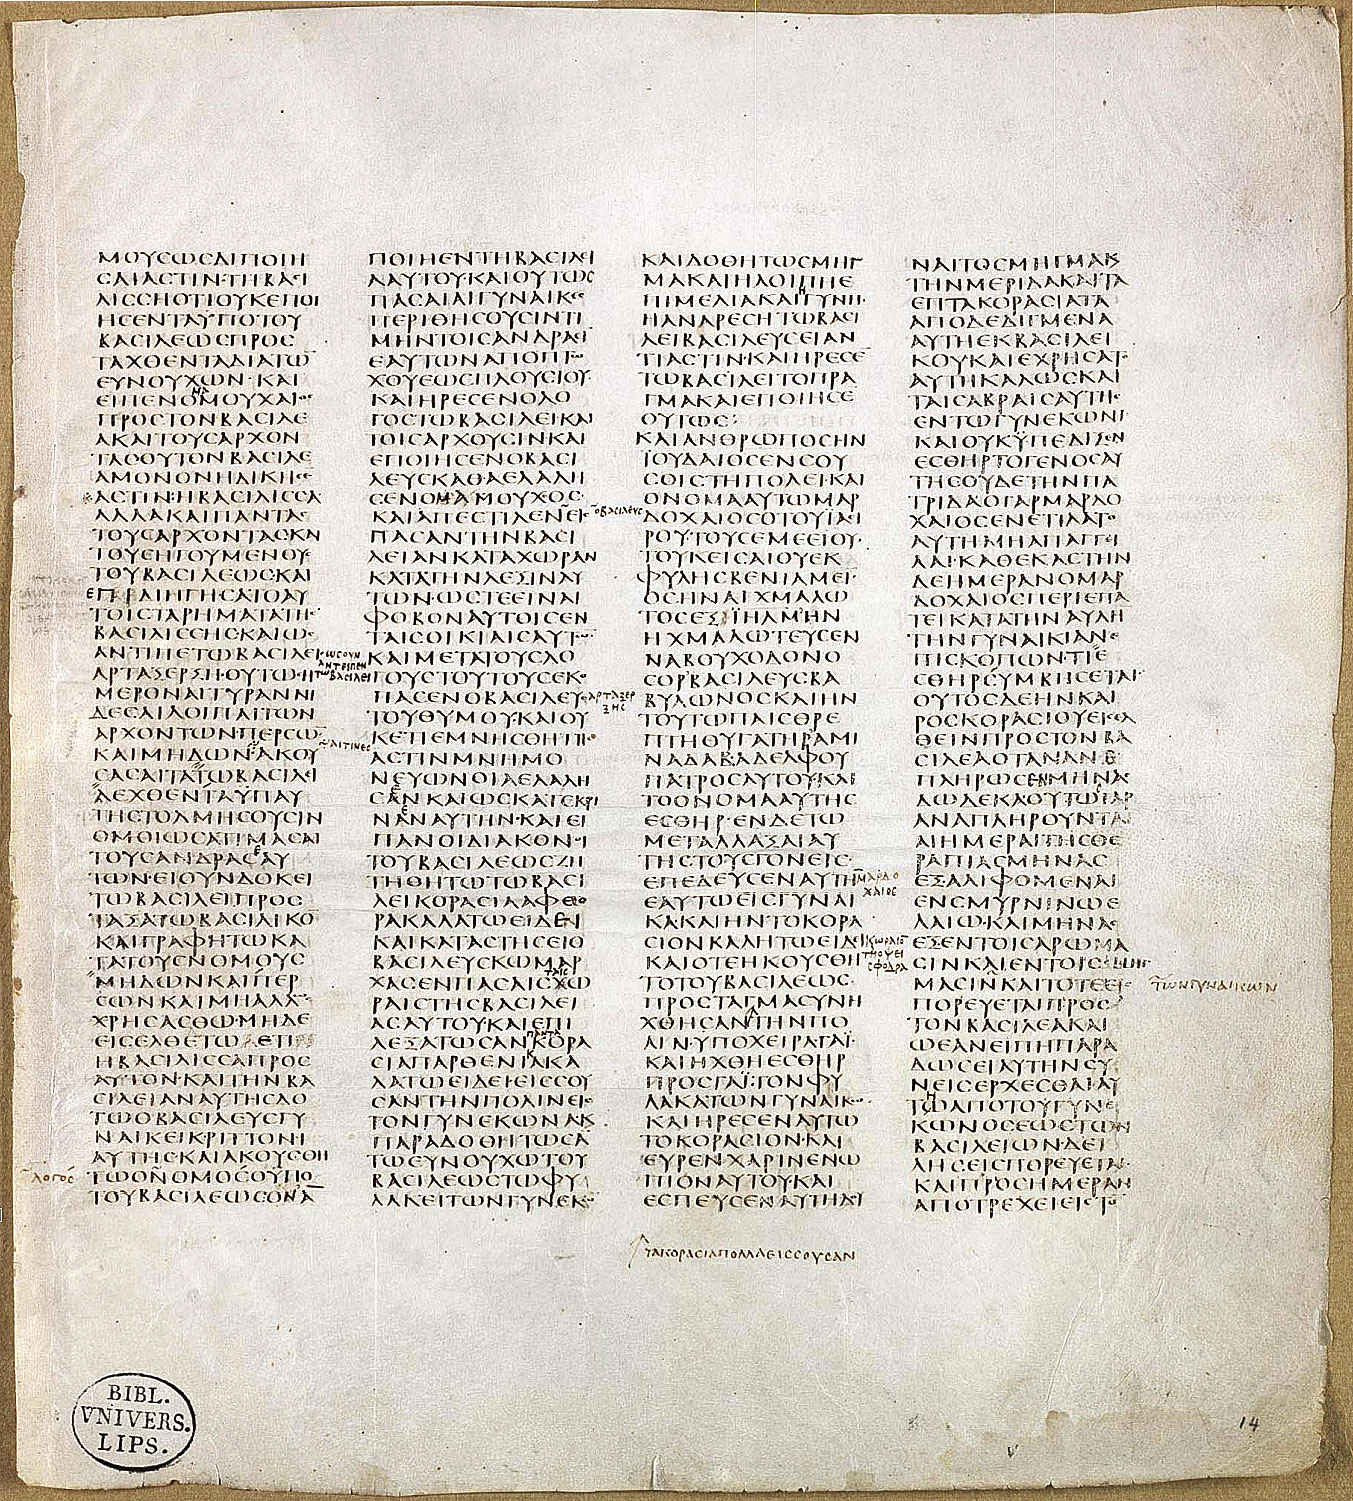 ΜΟΥϹΩϹΔΙΠΟΙΗ
ϹΑΙΑϹΤΙΝ·ΤΗΒΑϹΙ
ΛΙϹϹΗΟΤΙΟΥΚΕΠΟΙ
ΗϹΕΝΤΑΫΠΟΤΟΥ
ΒΑϹΙΛΕΩϹΠΡΟϹ
ΤΑΧΘΕΝΤΑΔΙΑΤΩ̅
ΕΥΝΟΥΧΩΝ·ΚΑΙ
ΕΙΠΕΝΟΜΟΥΧΑΙΟϹ
ΠΡΟϹΤΟΝΒΑϹΙΛΕ
ΑΚΑΙΤΟΥϹΑΡΧΟΝ
ΤΑϹΟΥΤΟΝΒΑϹΙΛΕ
ΑΜΟΝΟΝΗΔΙΚΗϹΕ
ΑϹΤΙΝ·ΗΒΑϹΙΛΙϹϹΑ
ΑΛΛΑΚΑΙΠΑΝΤΑϹ
ΤΟΥϹΑΡΧΟΝΤΑϹΚΑΙ
ΤΟΥϹΗΓΟΥΜΕΝΟΥϹ
ΤΟΥΒΑϹΙΛΕΩϹΚΑΙ
ΔΙΗΓΗϹΑΤΟΑΥ
ΤΟΙϹΤΑΡΗΜΑΤΑΤΗϹ
ΒΑϹΙΛΙϹϹΗϹΚΑΙΩϹ
ΑΝΤΙΠΕΤΩΒΑϹΙΛΕΙ
ΑΡΤΑΞΕΡΞΗ·ΟΥΤΩϹΗ
ΜΕΡΟΝΑΙΤΥΡΑΝΝΙ
ΔΕϹΑΙΛΟΙΠΑΙΤΩΝ
ΑΡΧΟΝΤΩΝΠΕΡϹΩ̅
ΚΑΙΜΗΔΩΝΑΚΟΥ
ϹΑϹΑΙΤΑΤΩΒΑϹΙΛΕΙ
ΛΕΧΘΕΝΤΑΫΠΑΥ
ΤΗϹΤΟΛΜΗϹΟΥϹΙΝ
ΟΜΟΙΩϹΑΤΙΜΑϹΑΙ
ΤΟΥϹΑΝΔΡΑϹΑΥ
ΤΩΝ·ΕΙΟΥΝΔΟΚΕΙ
ΤΩΒΑϹΙΛΕΙΠΡΟϹ
ΤΑΞΑΤΩΒΑϹΙΛΙΚΟ̅
ΚΑΙΓΡΑΦΗΤΩΚΑ
ΤΑΤΟΥϹΝΟΜΟΥϹ
ΜΗΔΩΝΚΑΙΠΕΡ
ϹΩΝΚΑΙΜΗΑΛΛΩϹ
ΧΡΗϹΑϹΘΩ·ΜΗΔΕ
ΕΙϹΕΛΘΕΤΩΕΤΙ
ΗΒΑϹΙΛΙϹϹΑΠΡΟϹ
ΑΥΤΟΝ·ΚΑΙΤΗΝΒΑ
ϹΙΛΕΙΑΝΑΥΤΗϹΔΟ
ΤΩΟΒΑϹΙΛΕΥϹΓΥ
ΝΑΙΚΕΙΚΡΙΤΤΟΝΙ
ΑΥΤΗϹ·ΚΑΙΑΚΟΥϹΘΗ
ΤΩΟΝΟΜΟϹΟΥΠΟ
ΤΟΥΒΑϹΙΛΕΩϹΟΝΑ̅
ΠΟΙΗΕΝΤΗΒΑϹΙΛΕΙ
ΑΑΥΤΟΥ·ΚΑΙΟΥΤΩϹ
ΠΑϹΑΙΑΙΓΥΝΑΙΚΕϹ
ΠΕΡΙΘΗϹΟΥϹΙΝΤΙ
ΜΗΝΤΟΙϹΑΝΔΡΑϹΙ
ΕΑΥΤΩΝΑΠΟΠΤΩ
ΧΟΥΕΩϹΠΛΟΥϹΙΟΥ·
ΚΑΙΗΡΕϹΕΝΟΛΟ
ΓΟϹΤΩΒΑϹΙΛΕΙΚΑΙ
ΤΟΙϹΑΡΧΟΥϹΙΝΚΑΙ
ΕΠΟΙΗϹΕΝΟΒΑϹΙ
ΛΕΥϹΚΑΘΑΕΛΑΛΗ
ϹΕΝΟΜΑΜΟΥΧΟϹ·
ΚΑΙΑΠΕϹΤΙΛΕΝΕΙϹ
ΠΑϹΑΝΤΗΝΒΑϹΙ
ΛΕΙΑΝΚΑΤΑΧΩΡΑΝ
ΚΑΤΑΤΗΝΛΕΞΙΝΑΥ
ΤΩΝ·ΩϹΤΕΕΙΝΑΙ
ΦΟΒΟΝΑΥΤΟΙϹΕΝ
ΤΑΙϹΟΙΚΙΑΙϹΑΥΤΩ
ΚΑΙΜΕΤΑΤΟΥϹΛΟ
ΓΟΥϹΤΟΥΤΟΥϹΕΚΟ
ΠΑϹΕΝΟΒΑϹΙΛΕΥϹ
ΤΟΥΘΥΜΟΥ·ΚΑΙΟΥ
ΚΕΤΙΕΜΝΗϹΘΗΤΗϹ
ΑϹΤΙΝΜΝΗΜΟ
ΝΕΥΩΝΟΙΑΕΛΑΛΗ
ϹΑΝΚΑΙΩϹΚΑΤΕΚΡΙ
ΝΑΝΑΥΤΗΝ·ΚΑΙΕΙ
ΠΑΝΟΙΔΙΑΚΟΝΟΙ
ΤΟΥΒΑϹΙΛΕΩϹΖΗ
ΤΗΘΗΤΩΤΩΒΑϹΙ
ΛΕΙΚΟΡΑϹΙΑΑΦΘΟ
ΡΑΚΑΛΑΤΩΕΙΔΕΙ
ΚΑΙΚΑΤΑϹΤΗϹΕΙΟ
ΒΑϹΙΛΕΥϹΚΩΜΑΡ
ΧΑϹΕΝΠΑϹΑΙϹΧΩ
ΡΑΙϹΤΗϹΒΑϹΙΛΕΙ
ΑϹΑΥΤΟΥ·ΚΑΙΕΠΙ
ΛΕΞΑΤΩϹΑΝΚΟΡΑ
ϹΙΑΠΑΡΘΕΝΙΑΚΑ
ΛΑΤΩΕΙΔΕΙ·ΕΙϹϹΟΥ
ϹΑΝΤΗΝΠΟΛΙΝΕΙϹ
ΤΟΝΓΥΝΕΚΩΝΑΚ
ΠΑΡΑΔΟΘΗΤΩϹΑ
ΤΩΕΥΝΟΥΧΩΤΟΥ
ΒΑϹΙΛΕΩϹΤΩΦΥ
ΛΑΚΕΙΤΩΝΓΥΝΕΚΩ
ΚΑΙΔΟΘΗΤΩϹΜΗΓ
ΜΑΚΑΙΗΛΟΙΠΗΕ
ΠΙΜΕΛΙΑΚΑΙΓΥΝΗ·
ΗΑΝΑΡΕϹΗΤΩΒΑϹΙ
ΛΕΙΒΑϹΙΛΕΥϹΕΙΑΝ
ΤΙΑϹΤΙΝ·ΚΑΙΗΡΕϹΕ̅
ΤΩΒΑϹΙΛΕΙΤΟΠΡΑ
ΓΜΑΚΑΙΕΠΟΙΗϹΕ
ΟΥΤΩϹ:
ΚΑΙΑΝΘΡΩΠΟϹΗΝ
ΙΟΥΔΑΙΟϹΕΝϹΟΥ
ϹΟΙϹΤΗΠΟΛΕΙ·ΚΑΙ
ΟΝΟΜΑΑΥΤΩΜΑΡ
ΔΟΧΑΙΟϹΟΤΟΥΙΑΕΙ
ΡΟΥ·ΤΟΥϹΕΜΕΕΙΟΥ·
ΤΟΥΚΕΙϹΑΙΟΥΕΚ
ΦΥΛΗϹΒΕΝΙΑΜΕΙ·
ΟϹΗΝΑΙΧΜΑΛΩ
ΤΟϹΕΞΙΗΛΜΉΝ
ΗΧΜΑΛΩΤΕΥϹΕΝ
ΝΑΒΟΥΧΟΔΟΝΟ
ϹΟΡΒΑϹΙΛΕΥϹΒΑ
ΒΥΛΩΝΟϹΚΑΙΗΝ
ΤΟΥΤΩΠΑΙϹΘΡΕ
ΠΤΗΘΥΓΑΤΗΡΑΜΙ
ΝΑΔΑΒΑΔΕΛΦΟΥ
ΠΑΤΡΟϹΑΥΤΟΥ·ΚΑΙ
ΤΟΟΝΟΜΑΑΥΤΗϹ
ΕϹΘΗΡ·ΕΝΔΕΤΩ
ΜΕΤΑΛΛΑΞΑΙΑΥ
ΤΗϹΤΟΥϹΓΟΝΕΙϹ·
ΕΠΕΔΕΥϹΕΝΑΥΤΗ̅
ΕΑΥΤΩΕΙϹΓΥΝΑΙ
ΚΑΚΑΙΗΝΤΟΚΟΡΑ
ϹΙΟΝΚΑΛΗΤΩΕΙΔΕΙ
ΚΑΙΟΤΕΗΚΟΥϹΘΗ
ΤΟΤΟΥΒΑϹΙΛΕΩϹ·
ΠΡΟϹΤΑΓΜΑϹΥΝΗ
ΧΘΗϹΑΝΤΗΝΠΟ
ΛΙΝ·ΥΠΟΧΕΙΡΑΓΑΪ·
ΚΑΙΗΧΘΗΕϹΘΗΡ
ΠΡΟϹΓΑΪ:ΤΟΝΦΥ
ΛΑΚΑΤΩΝΓΥΝΑΙΚΩ
ΚΑΙΗΡΕϹΕΝΑΥΤΩ
ΤΟΚΟΡΑϹΙΟΝ·ΚΑΙ
ΕΥΡΕΝΧΑΡΙΝΕΝΩ
ΠΙΟΝΑΥΤΟΥΚΑΙ
ΕϹΠΕΥϹΕΝΑΥΤΗΔΙ
ΝΑΙΤΟϹΜΗΓΜΑΚΑΙ
ΤΗΝΜΕΡΙΔΑΚΑΙΤΑ
ΕΠΤΑΚΟΡΑϹΙΑΤΑ
ΑΠΟΔΕΔΙΓΜΕΝΑ
ΑΥΤΗΕΚΒΑϹΙΛΕΙ
ΚΟΥΚΑΙΕΧΡΗϹΑΤΟ
ΑΥΤΗΚΑΛΩϹΚΑΙ
ΤΑΙϹΑΒΡΑΙϹΑΥΤΗϹ
ΕΝΤΩΓΥΝΕΚΩΝΙ
ΚΑΙΟΥΚΫΠΕΔΙΞΕΝ
ΕϹΘΗΡΤΟΓΕΝΟϹΑΥ
ΤΗϹΟΥΔΕΤΗΝΠΑ
ΤΡΙΔΑΟΓΑΡΜΑΡΔΟ
ΧΑΙΟϹΕΝΕΤΙΛΑΤΟ
ΑΥΤΗΜΗΑΠΑΓΓΙ
ΛΑΙ·ΚΑΘΕΚΑϹΤΗΝ
ΔΕΗΜΕΡΑΝΟΜΑΡ
ΔΟΧΑΙΟϹΠΕΡΙΕΠΑ
ΤΕΙΚΑΤΑΤΗΝΑΥΛΗ
ΤΗΝΓΥΝΑΙΚΙΑΝΕ
ΠΙϹΚΟΠΩΝ·ΤΙΕ
ϹΘΗΡϹΥΜΒΗϹΕΤΑΙ·
ΟΥΤΟϹΔΕΗΝΚΑΙ
ΡΟϹΚΟΡΑϹΙΟΥΕΙϹΕΛ
ΘΕΙΝΠΡΟϹΤΟΝΒΑ
ϹΙΛΕΑΟΤΑΝΑΝ
ΠΛΗΡΩϹΕΝΜΗΝΑϹ
ΔΩΔΕΚΑΟΥΤΩΓΑΡ
ΑΝΑΠΛΗΡΟΥΝΤΑΙ
ΑΙΗΜΕΡΑΙΤΗϹΘΕ
ΡΑΠΙΑϹΜΗΝΑϹ
ΕΞΑΛΙΦΟΜΕΝΑΙ
ΕΝϹΜΥΡΝΙΝΩΕ
ΛΑΙΩ·ΚΑΙΜΗΝΑϹ
ΕΞΕΝΤΟΙϹΑΡΩΜΑ
ϹΙΝΚΑΙΕΝΤΟΙϹϹΜΗΓ
ΜΑϹΙΝΚΑΙΤΟΤΕΕΙϹ
ΠΟΡΕΥΕΤΑΙΠΡΟϹ
ΤΟΝΒΑϹΙΛΕΑΚΑΙ
ΩΕΑΝΕΙΠΗΠΑΡΑ
ΔΩϹΕΙΑΥΤΗΝϹΥ
ΝΕΙϹΕΡΧΕϹΘΑΙΑΥ
ΤΩΑΠΟΤΟΥΓΥΝΕ
ΚΩΝΟϹΕΩϹΤΩΝ
ΒΑϹΙΛΕΙΩΝ·ΔΕΙ
ΛΗϹΕΙϹΠΟΡΕΥΕΤΑΙ·
ΚΑΙΠΡΟϹΗΜΕΡΑΝ
ΑΠΟΤΡΕΧΕΙΕΙϹΤΟ
ΩϹΟΥΝ
ΑΝΤΕΙΠΕΝ
ΤΩΒΑϹΙΛΕΙ
ΑΙΤΙΝΕϹ
ΛΟΓΟϹ
ΟΒΑϹΙΛΕΥϹ
ΑΡΤΑΞΕΡ
ΞΗϹ
ΤΑΙϹ
ΠΑΝΤΑ
ΜΑΡΔΟ
ΧΑΙΟϹ
ΚΩΡΑΙΟ̅
ΤΗΟΨΕΙ
ϹΦΟΔΡΑ
ΤΩΝΓΥΝΑΙΚΩΝ
ΤΑΚΟΡΑϹΙΑΠΟΛΛΑΕΙϹϹΟΥϹΑΝ
BIBL.
VNIVERS.
LIPS.
14